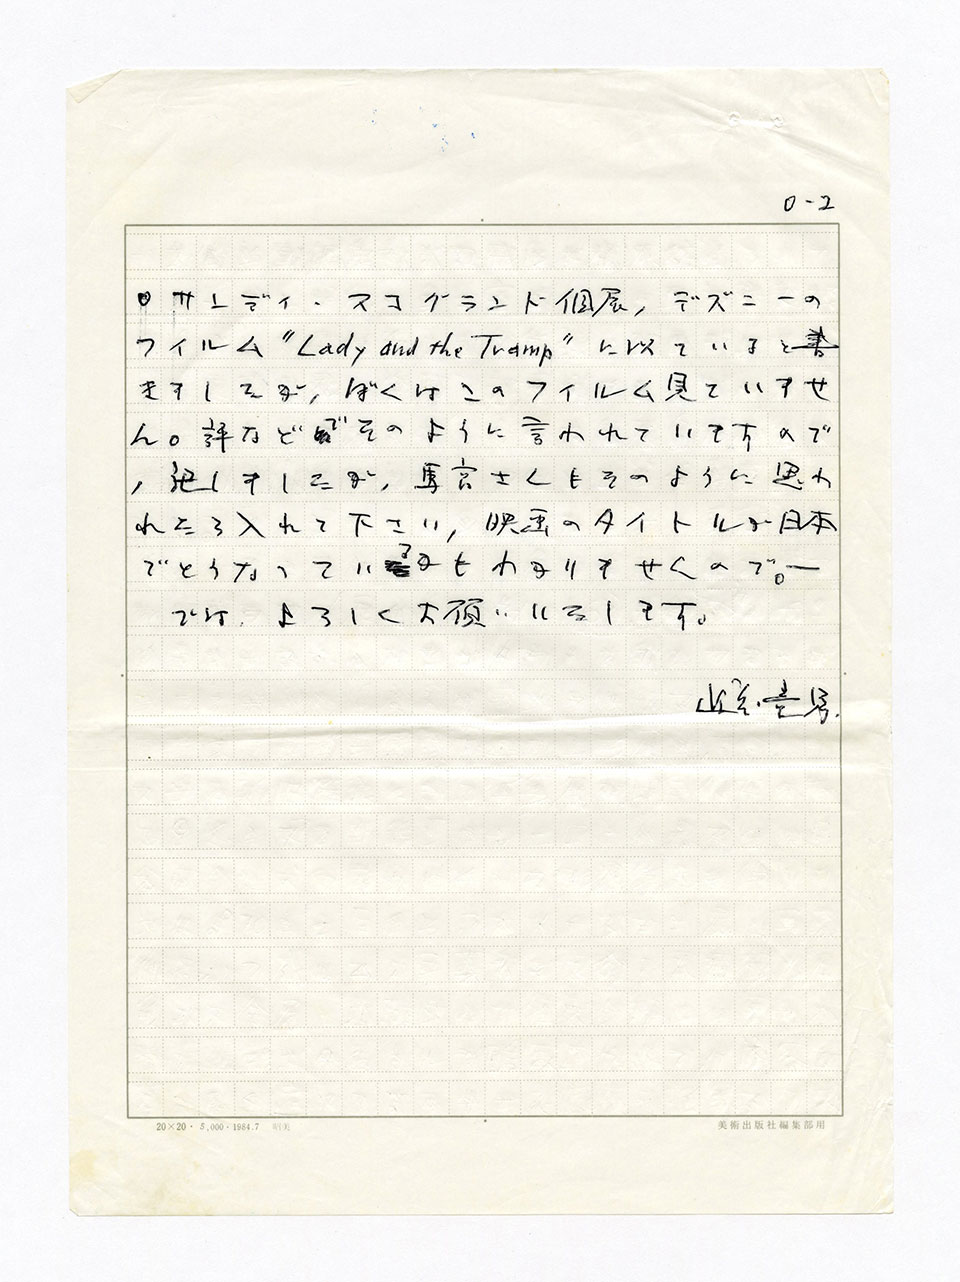 0-2
◎サンディ・スコグランド個展，デズニーの
フィルム“Lady and the Tramp”に似ていると書
きましたが，ぼくはこのフィルム見ていませ
ん。評などでそのように言われていますので
，記しましたが，馬宮さんもそのように思わ
れたら入れて下さい，映画のタイトルが日本
でどうなっているかもわかりませんので。ー
では，よろしくお願いいたします。
20×20・5,000・1984.7 昭美
美術出版社編集部用